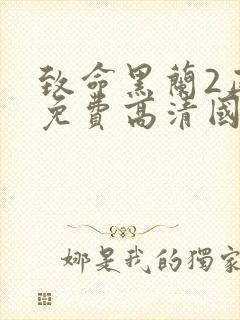 致命黑蘭2
免費高清國
娜是我的獨家